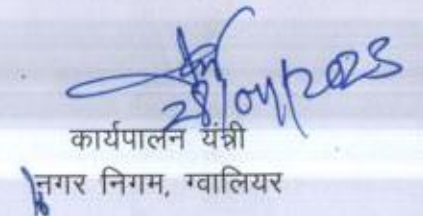 28/04/2025
कार्यपालन यंत्री
नगर निगम, ग्वालियर